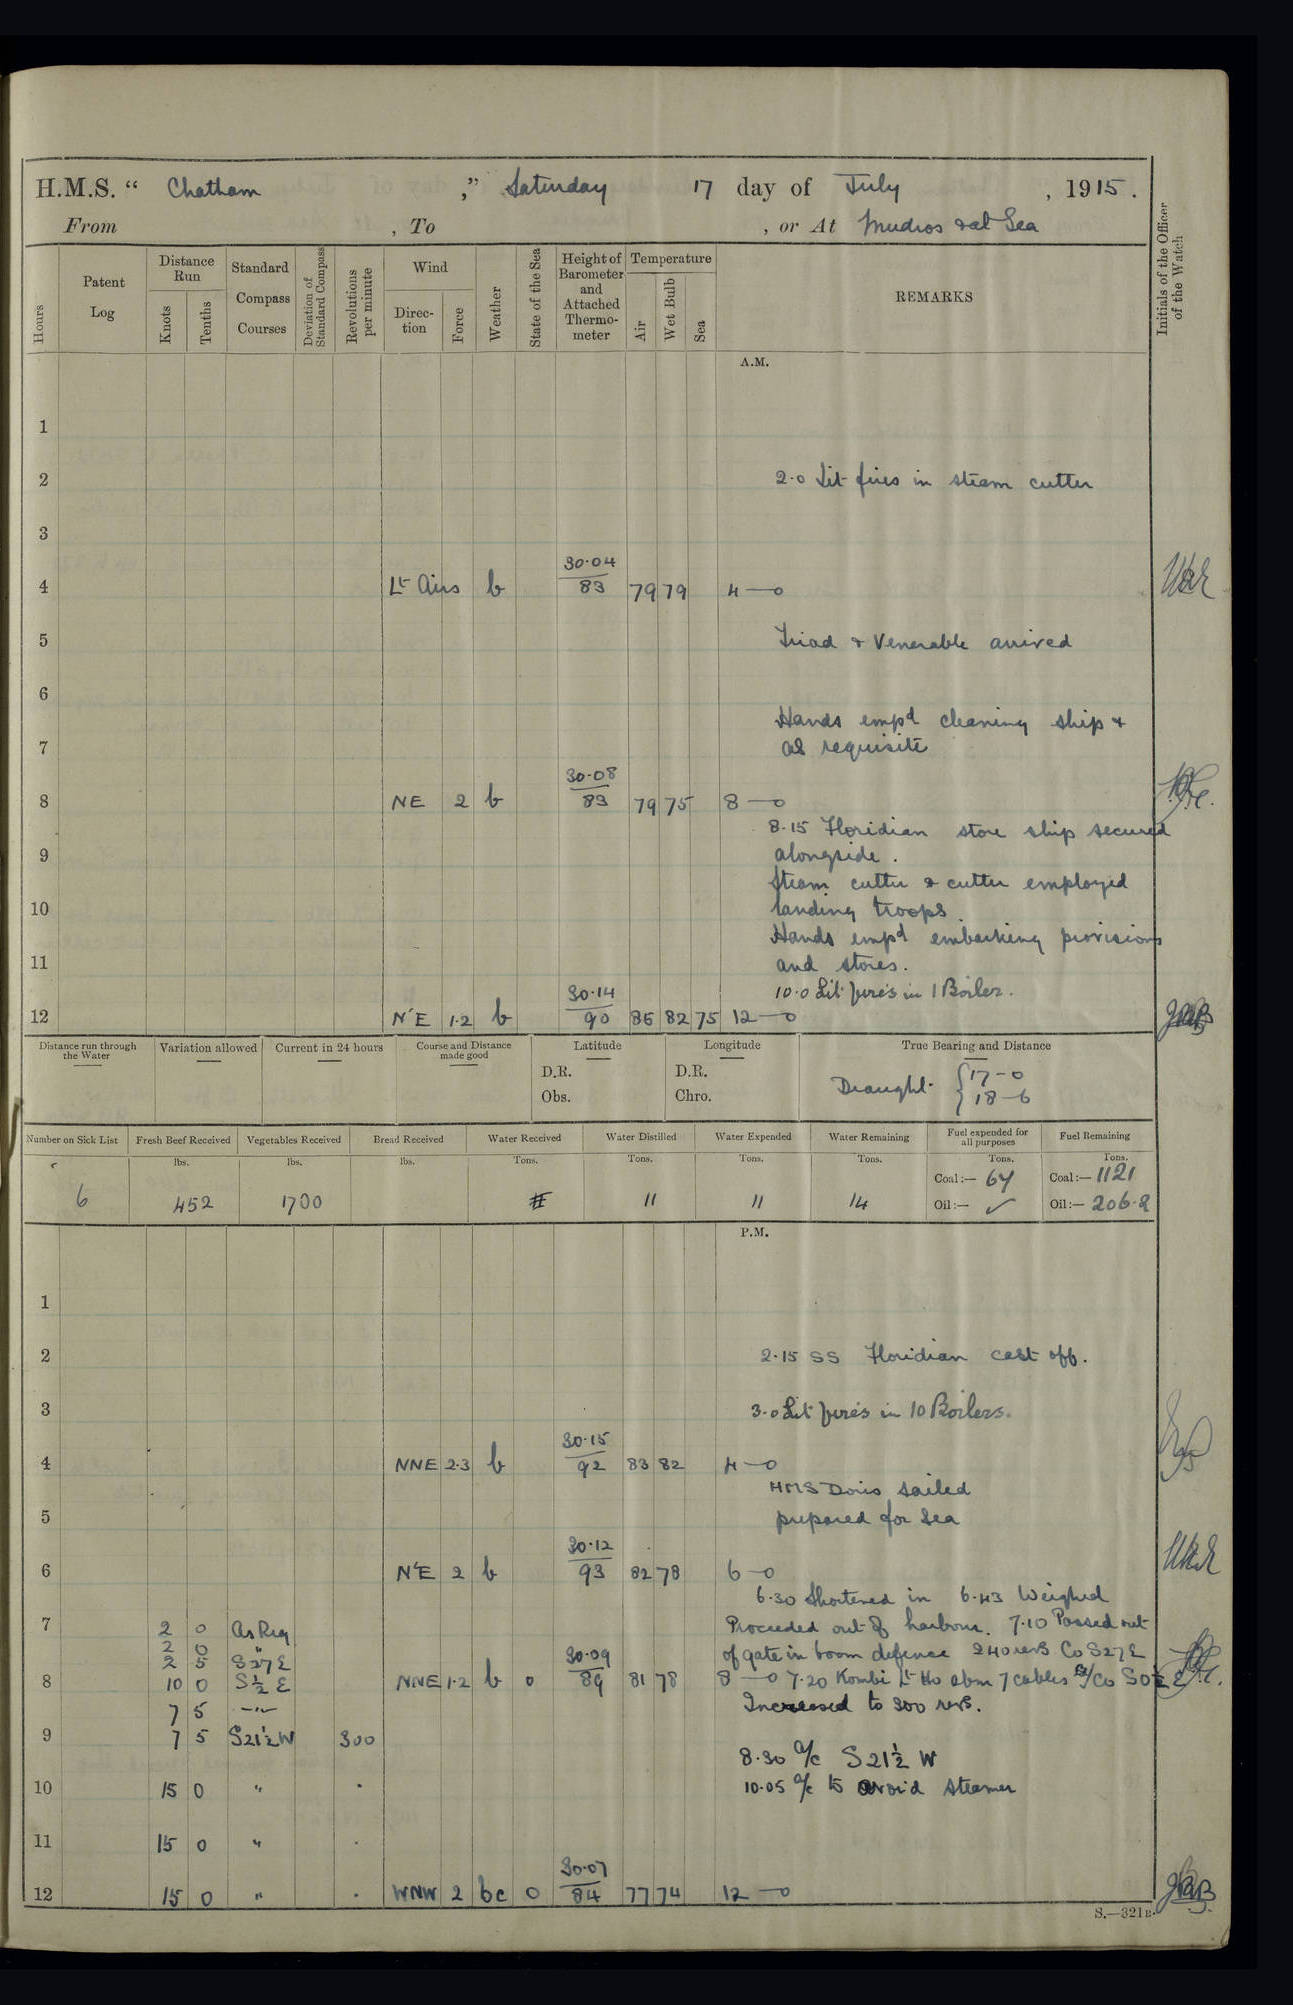 H.M.S. “ Chatham ,” Saturday 17 day of July , 1915.
From , To , or At Mudros & at Sea
Hours
Patent Log
Distance Run
Knots
Tenths
Standard Compass Courses
Deviation of Standard Compass
Revolutions per minute
Wind
Direction
Force
Weather
State of the Sea
Height of Barometer and Attached Thermometer
Temperature
Air
Wet Bulb
Sea
REMARKS
Initials of the Officer of the Watch
A.M.
1
2 2.0 Lit fires in steam cutter
3
4 Lt Airs b 30.04 83 79 79 4—0
5 Triad & Venerable arrived
6
Hands empd cleaning ship &
7 as requisite
8 NE 2 b 30.08 83 79 75 8—0
8.15 Floridian store ship secured
9 alongside.
Steam cutter & cutter employed
10 landing troops
Hands empd embarking provisions
11 and stores.
10.0 Lit fires in 1 Boiler.
12 N'E 1.2 b 30.14 90 86 82 75 12—0
Distance run through the Water
Variation allowed
Current in 24 hours
Course and Distance made good
Latitude
D.R.
Obs.
Longitude
D.R.
Chro.
True Bearing and Distance
Draught. 17-0
18-6
Number on Sick List
Fresh Beef Received
Vegetables Received
Bread Received
Water Received
Water Distilled
Water Expended
Water Remaining
Fuel expended for all purposes
Fuel Remaining
lbs. lbs. lbs. Tons. Tons. Tons. Tons. Tons. Tons.
Coal:— 64 Coal:— 1121
6 452 1700 11 11 14 Oil:— ✓ Oil:— 206.2
P.M.
1
2 2.15 SS Floridian cast off.
3 3.0 Lit fires in 10 Boilers.
4 NNE 2.3 b 30.15 92 83 82 4—0
HMS Doris sailed
5 prepared for sea
6 N'E 2 b 30.12 93 82 78 6—0
6.30 Shortened in 6.43 Weighed
7 2 0 As Req Proceeded out of harbour. 7.10 Passed out
2 0 "
2 5 S27E of gate in boom defence 240 revs Co S27E
8 10 0 S½E NNE 1.2 b 0 30.09 89 81 78 8—0 7.20 Kombi Lt Ho abm 7 cables a/co S0½E
7 5 —"— Increased to 300 revs.
9 7 5 S21½W 300
8.30 a/c S21½W
10 15 0 " " 10.05 a/c to avoid steamer
11 15 0 " "
12 15 0 " " WNW 2 bc 0 30.07 84 77 74 12—0
S.—321B.